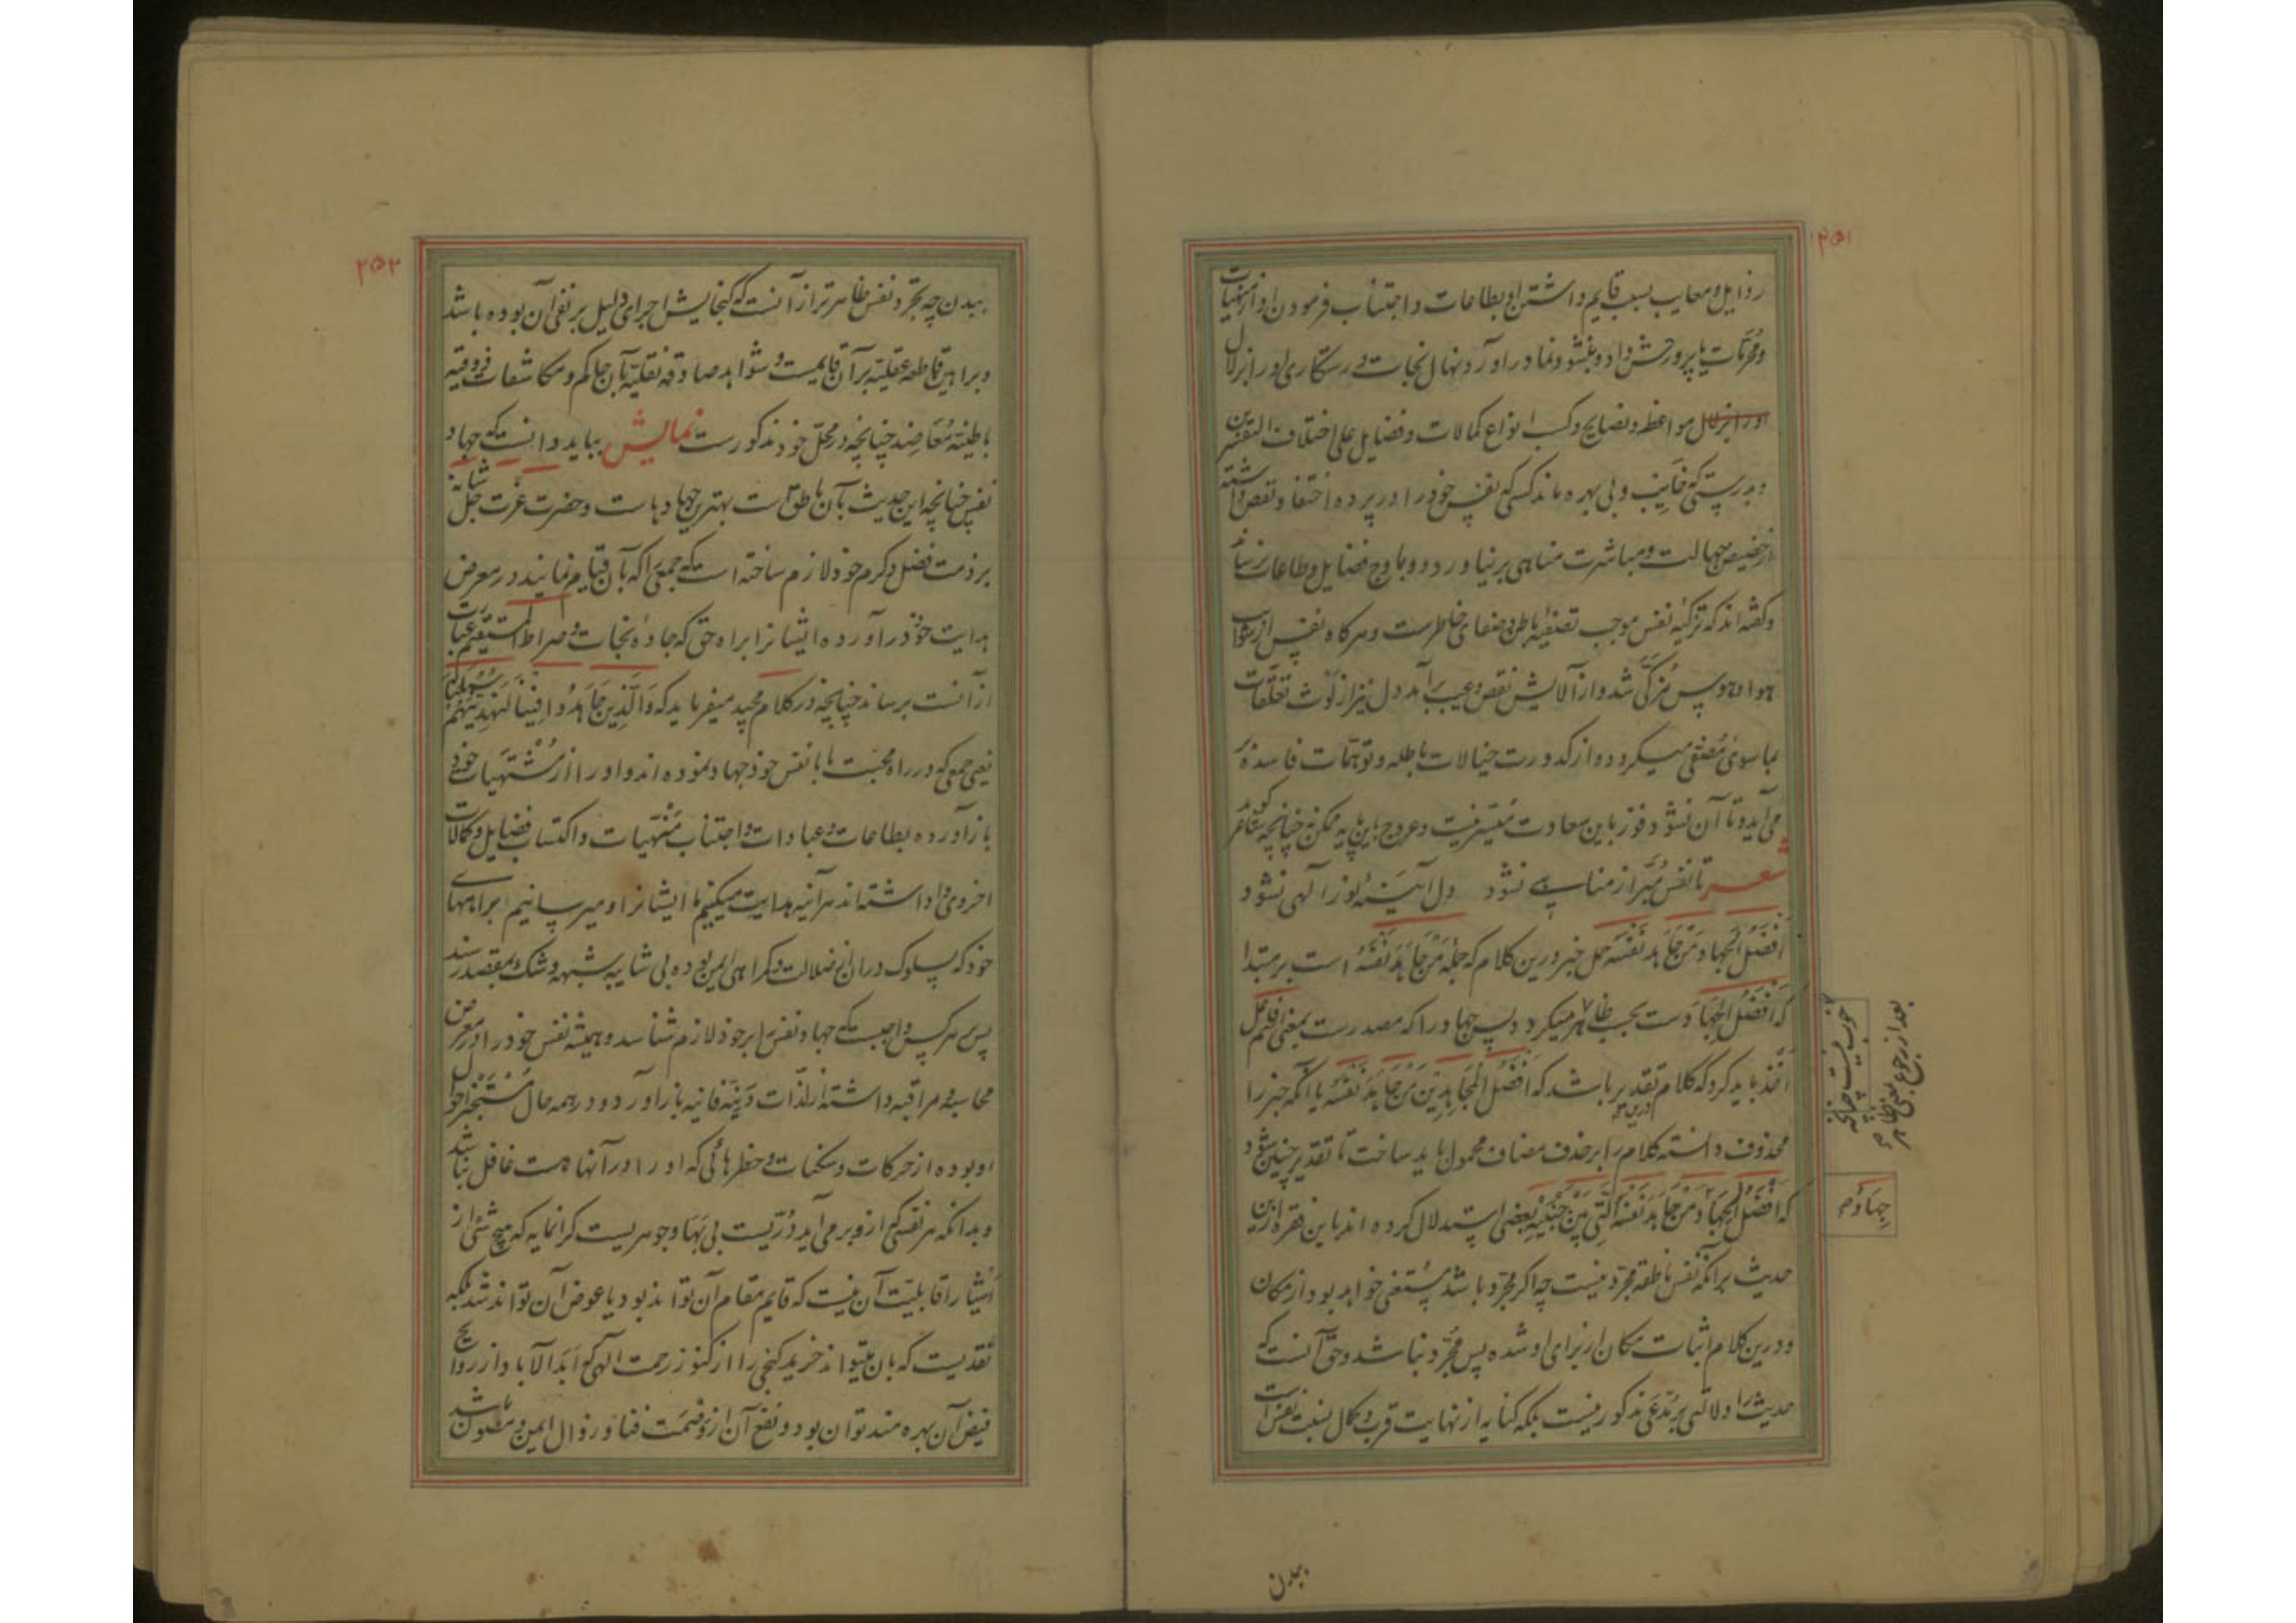 ۲۵۱
رذایل و معایب بسبب قایم داشتن او بطاعات و اجتناب فرمودن او از منهیات
و محرمات یا پرورش داد و بنشو و نما در آورد نهال نجات و رستکاری او را بزلال
او را بزلال مواعظ و نصایح و کسب انواع کمالات و فضایل علی اختلاف
و بدرستی که خایب و بی بهره ماند کسی که نفس خود را در پرده اختفا و نقص داشته
از حضیض جهالت و مباشرت مناهی بر نیاورد و باوج فضایل و طاعات نرساند
و کفته اند که تزکیه نفس موجب تصفیه باطن و صفای خاطرست و هرکاه نفس از شوایب
هوا و هوس مزکی شد و از آلایش نقص و عیب برآمد دل نیز از لوث تعلقات
بما سوی مصفی میکردد و از کدورت خیالات باطله و توهمات فاسده
می آید و تا آن نشود فوز باین سعادت میسر نیست و عروج باین پایه ممکن نه چنانچه شاعر کوید
شعر تا نفس مبرا ز مناهی نشود دل آینه نور آلهی نشود
اَفْضَلُ الْجِهادِ مَنْ جاهَدَ نَفْسَهُ حمل خبر درین کلام که جمله مَنْ جاهَدَ نَفْسَهُ است بر مبتدا
که اَفْضَلُ الْجِهاد ست بحسب ظاهر میکردد پس جهاد را که مصدرست بمعنی فاعل
اخذ باید کرد که کلام بتقدیر باشد که اَفْضَلُ الْمُجاهِدینَ مَنْ جاهَدَ نَفْسَهُ یا آنکه خبر را
محذوف دانسته کلام را بر حذف مضاف محمول باید ساخت تا تقدیر چنین شود
که اَفْضَلُ الْجِهادِ مَنْ جاهَدَ نَفْسَهُ الَّتی بَیْنَ جَنْبَیْهِ بعضی استدلال کرده اند باین فقره ازین
حدیث برآنکه نفس ناطقه مجرد نیست چه اکر مجرد باشد مستغنی خواهد بود از مکان
و درین کلام اثبات مکان از برای او شده پس مجرد نباشد و حق آنست که
حدیث را دلالتی بر مدعی مذکور نیست بلکه کنایه از نهایت قرب و کمال نسبت نفس است
خوب نیست چنانچه
بعد از رجوع
جِهادُ صح
ببدن
۲۵۲
ببدن چه تجرد نفس ظاهر تر از آنست که کنجایش اجرای دلیل بر نفی آن بوده باشد
و براهین قاطعه عقلیه برآن قایمست و شواهد صادقه نقلیه بآن حاکم و مکاشفات ذوقیه
باطنیه مُعاضِد چنانچه در محل خود مذکورست نمایش بباید دانست که جهاد
نفس چنانچه این حدیث بآن ناطق است بهترین جهادهاست و حضرت عزت جل شانه
بر ذمت فضل و کرم خود لازم ساخته است که جمعی را که بآن قیام نمایند در معرض
هدایت خود در آورده ایشانرا براه حق که جاده نجات و صراط المستقیم عبارت
از آنست برساند چنانچه در کلام مجید میفرماید که وَالَّذینَ جاهَدُوا فینا لَنَهْدِیَنَّهُمْ سُبُلَنا
یعنی جمعی که در راه محبت ما با نفس خود جهاد نموده اند و او را از مشتهیات خود
باز آورده بطاعات و عبادات و اجتناب منهیات و اکتساب فضایل و کمالات
اخروی واداشته اند هرآینه هدایت میکنیم ما ایشانرا و میرسانیم براههای
خود که بسلوک دران از ضلالت و کمراهی ایمن بوده بی شایبه شبهه و شک بمقصد رسند
پس هر کس واجبست که جهاد نفس را بر خود لازم شناسد و همیشه نفس خود را در معرض
محاسبه و مراقبه داشته از لذات دَنِیّه فانیه باز آورد و در همه حال مستخبر احوال
او بوده از حرکات و سکنات و خطرهائی که او را در آنها هست غافل نباشد
و بدانکه هر نفسی که ازو بر می آید دُرّیست بی بَها و جوهریست کرانمایه که هیچ شئی از
اشیا را قابلیت آن نیست که قایم مقام آن تواند بود یا عوض آن تواند شد بلکه
نقدیست که بآن میتواند خرید کنجی را از کنوز رحمت الهی که ابد الآباد از روایح
فیض آن بهره مند توان بود و نفع آن از وصمت فنا و زوال ایمن و مصون باشد